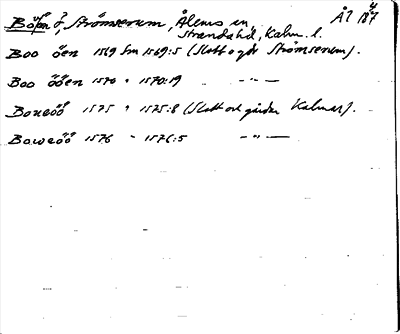 Böön ö, Strömserum, Ålems sn Å7 187
Stranda hd, Kalm. l.
Boo öen 1569 Sm 1569:5 (Slott o gdr Strömserum).
Boo ööen 1570 " 1570:19 — " —
Boneöö 1575 " 1575:8 (Slott och gårdar Kalmar).
Boweöö 1576 " 1576:5 — " —